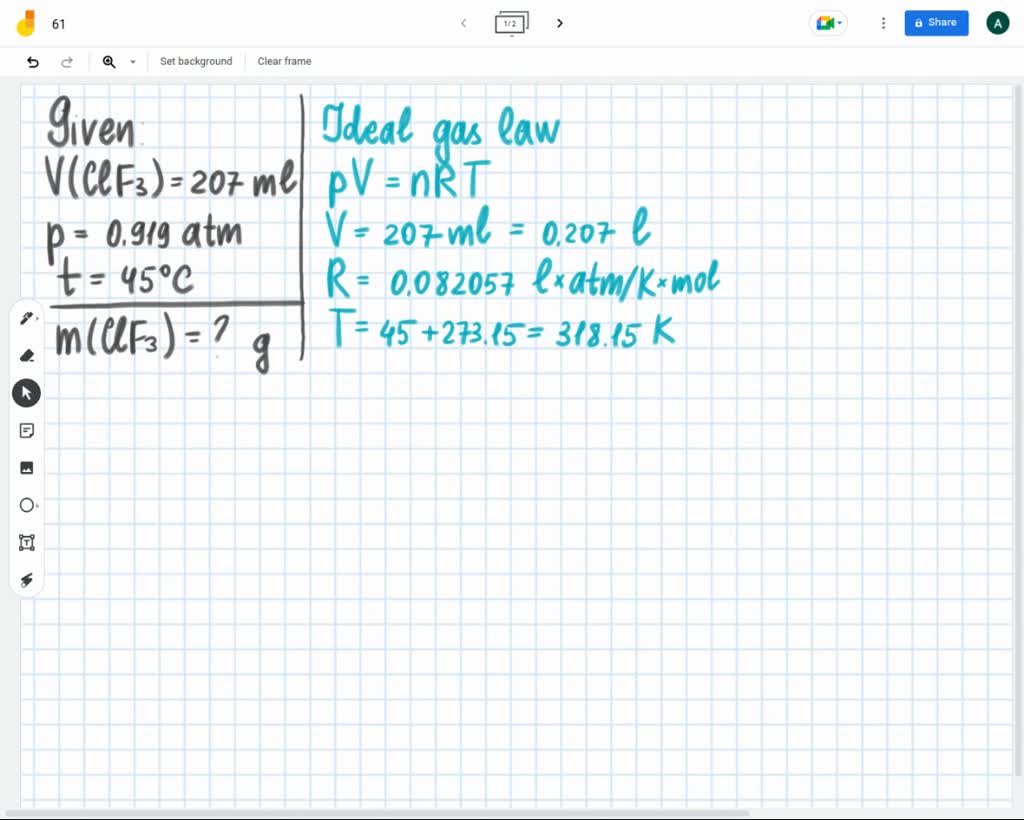 61
1/2
Share
A
Set background
Clear frame
Given
V(ClF₃) = 207 ml
p = 0.919 atm
t = 45°C
m(ClF₃) = ? g
Ideal gas law
pV = nRT
V = 207 ml = 0.207 l
R = 0.082057 l×atm/K×mol
T = 45 + 273.15 = 318.15 K